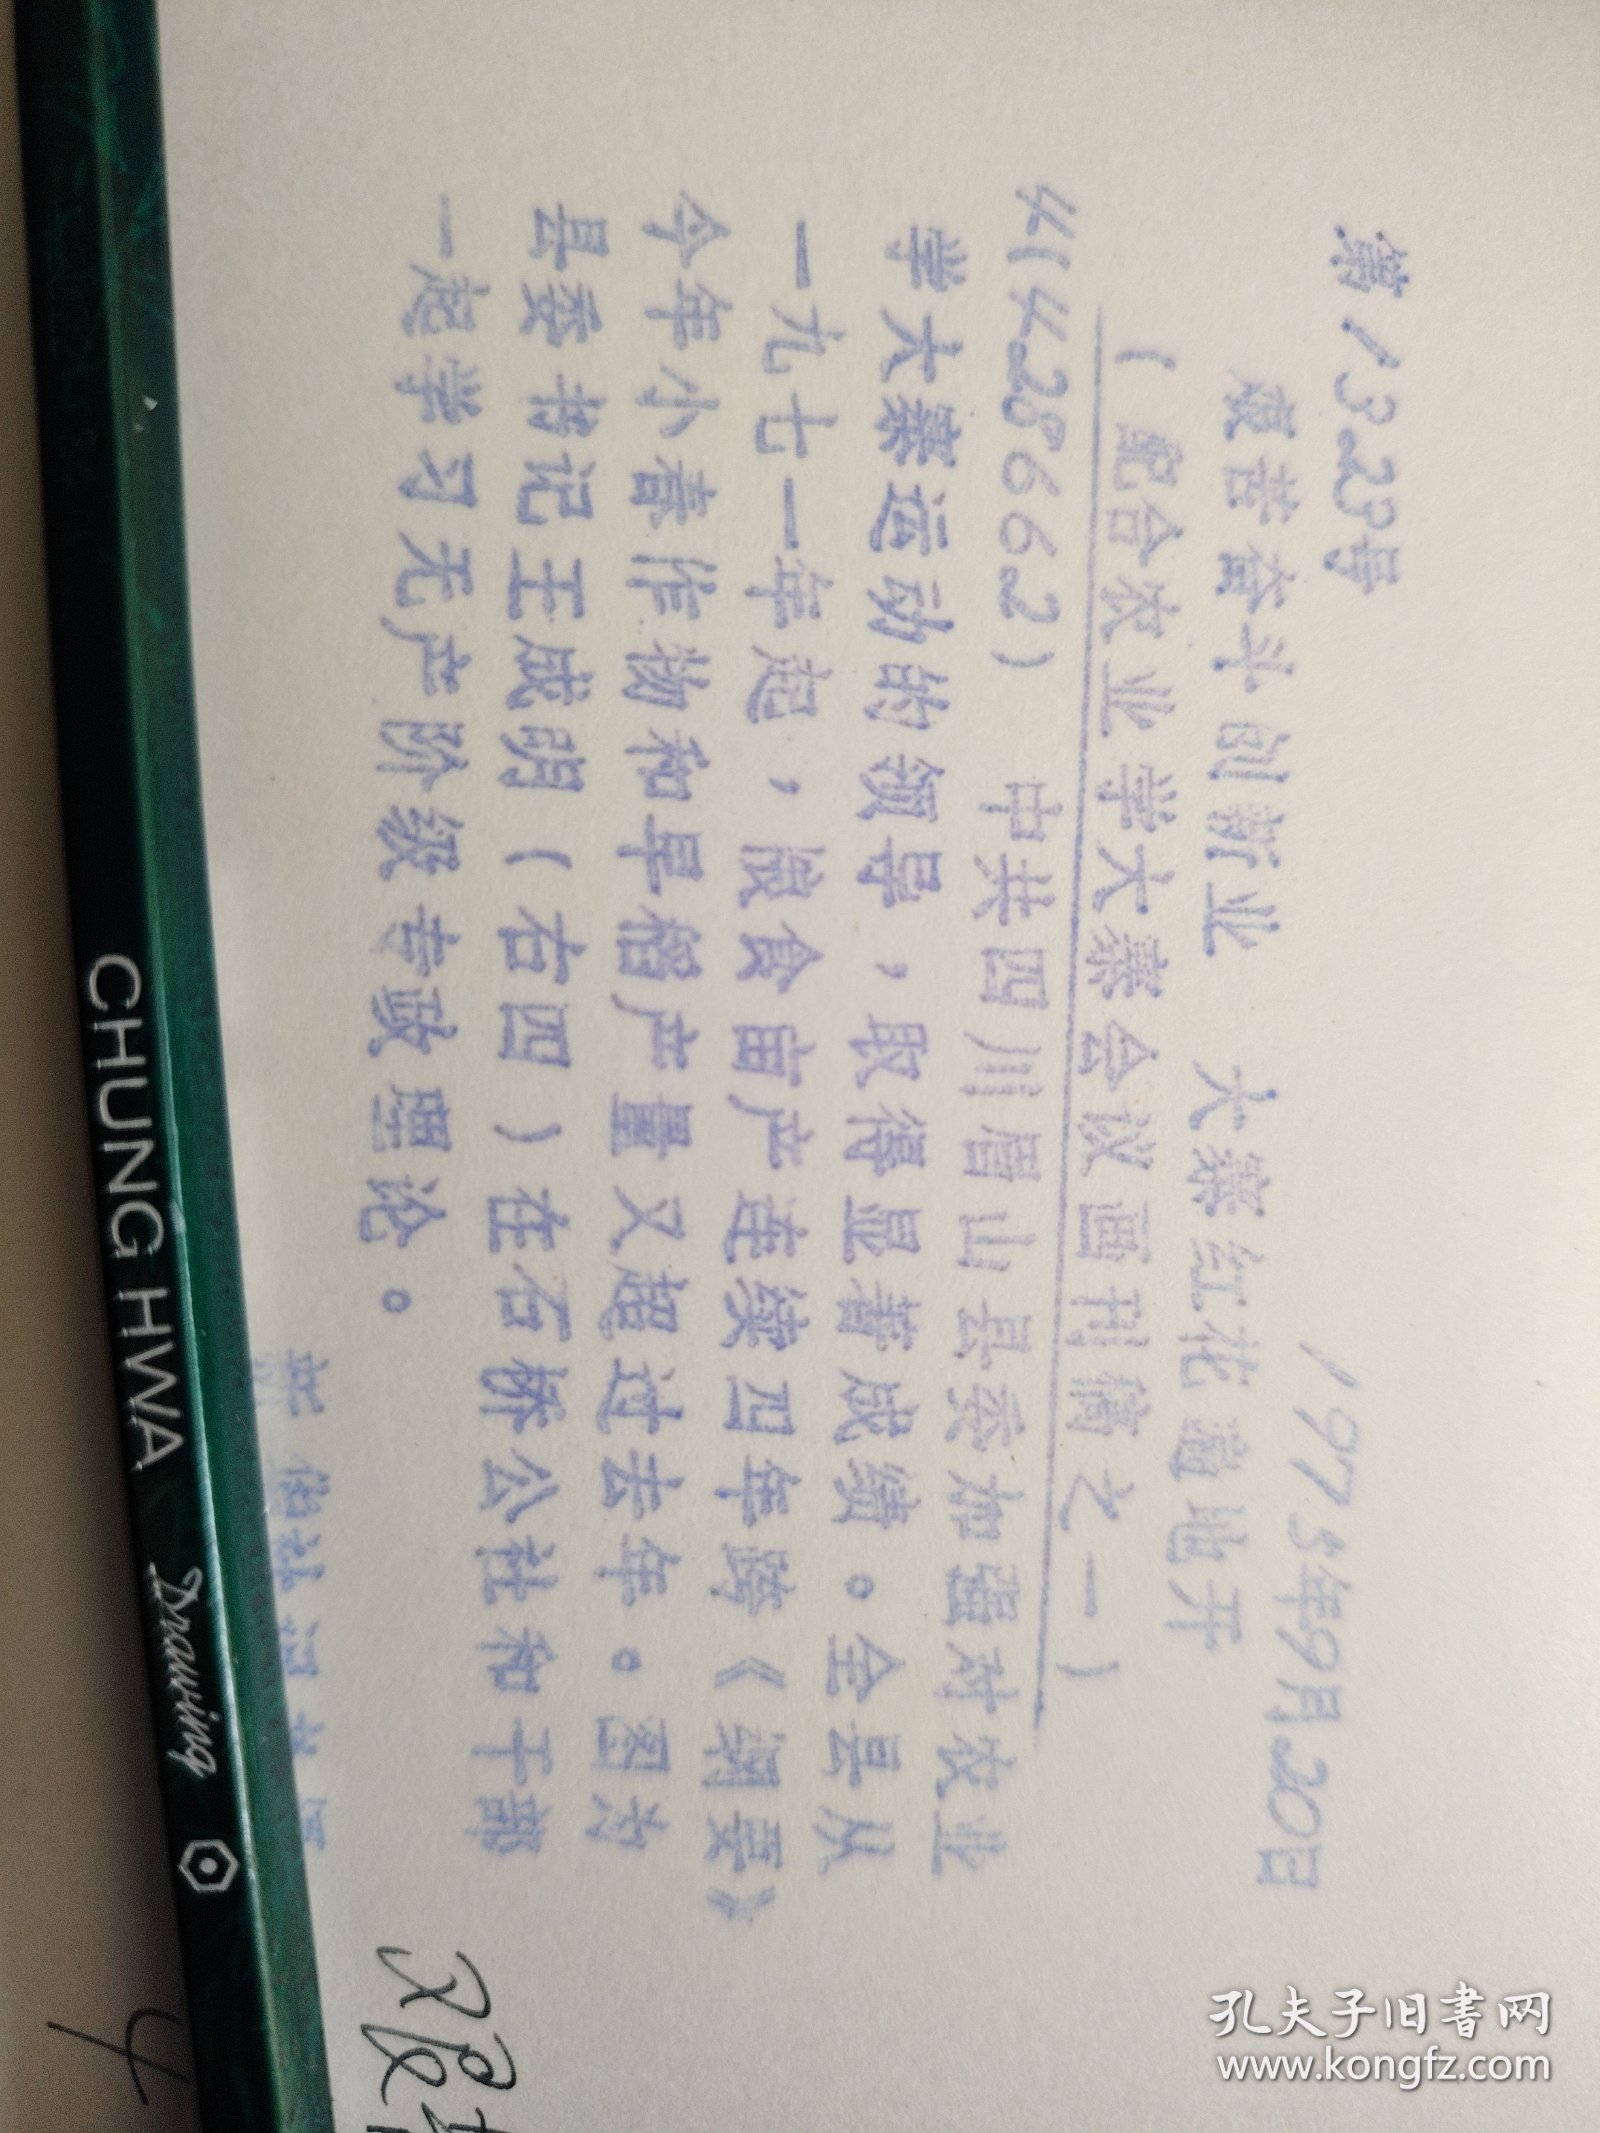 第1323号
1975年9月20日
艰苦奋斗创新业 大寨红花遍地开
（配合农业学大寨会议画刊稿之一）
41428662） 中共四川眉山县委加强对农业
学大寨运动的领导，取得显著成绩。全县从
一九七一年起，粮食亩产连续四年跨《纲要》
今年小春作物和早稻产量又超过去年。图为
县委书记王成明（右四）在石桥公社和干部
一起学习无产阶级专政理论。
新华社记者
CHUNG HWA Drawing
4
孔夫子旧书网
www.kongfz.com